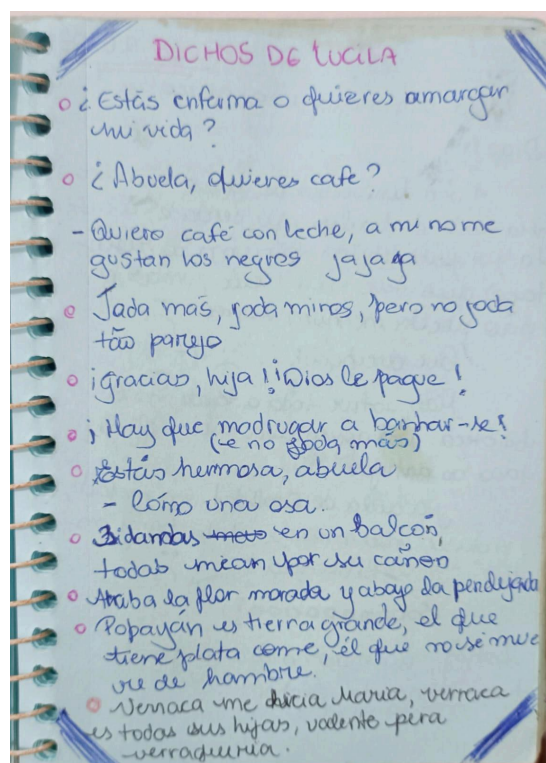 DICHOS DE LUCILA
¿Estás enferma o quieres amargar
mi vida?
¿Abuela, quieres cafe?
- Quiero café con leche, a mi no me
gustan los negros jajaja
Joda más, joda minos, pero no joda
tão parejo
¡gracias, hija! ¡Dios le pague!
¡Hay que madrugar a banhar-se!
(e no joda más)
Estás hermosa, abuela
- Cómo una osa.
3 damas en un balcón,
todas mean por su cañon
Arriba la flor morada y abajo la pendejada
Popayán es tierra grande, el que
tiene plata come, él que no se mue
re de hambre.
Verraca me dicia Maria, verraca
es todas sus hijas, valente pera
verraquuria.